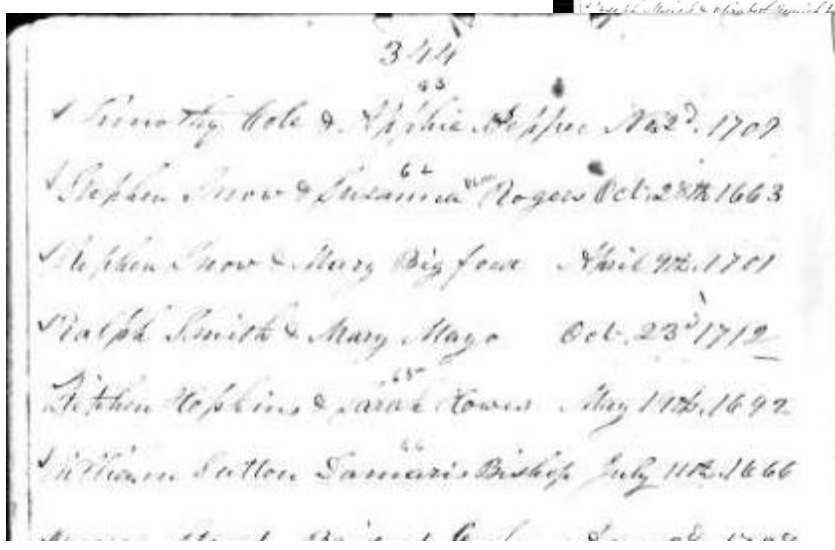 Joseph
344
83
Timothy Cole & Apphia Pepper Nov 2d. 1709
62
Stephen Snow & Susanna Rogers Oct. 28th 1663
Stephen Snow & Mary Bigford April 9th. 1701
Ralph Smith & Mary Mayo Oct. 23d 1712
65
Stephen Hopkins & Sarah Howes May 19th. 1692
66
William Sutton Damaris Bishop July 11th. 1666